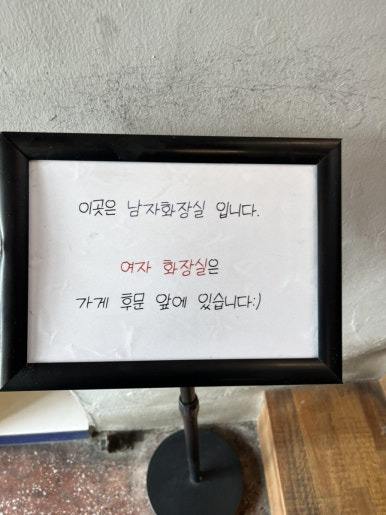 이곳은 남자화장실 입니다.
여자 화장실은
가게 후문 앞에 있습니다:)